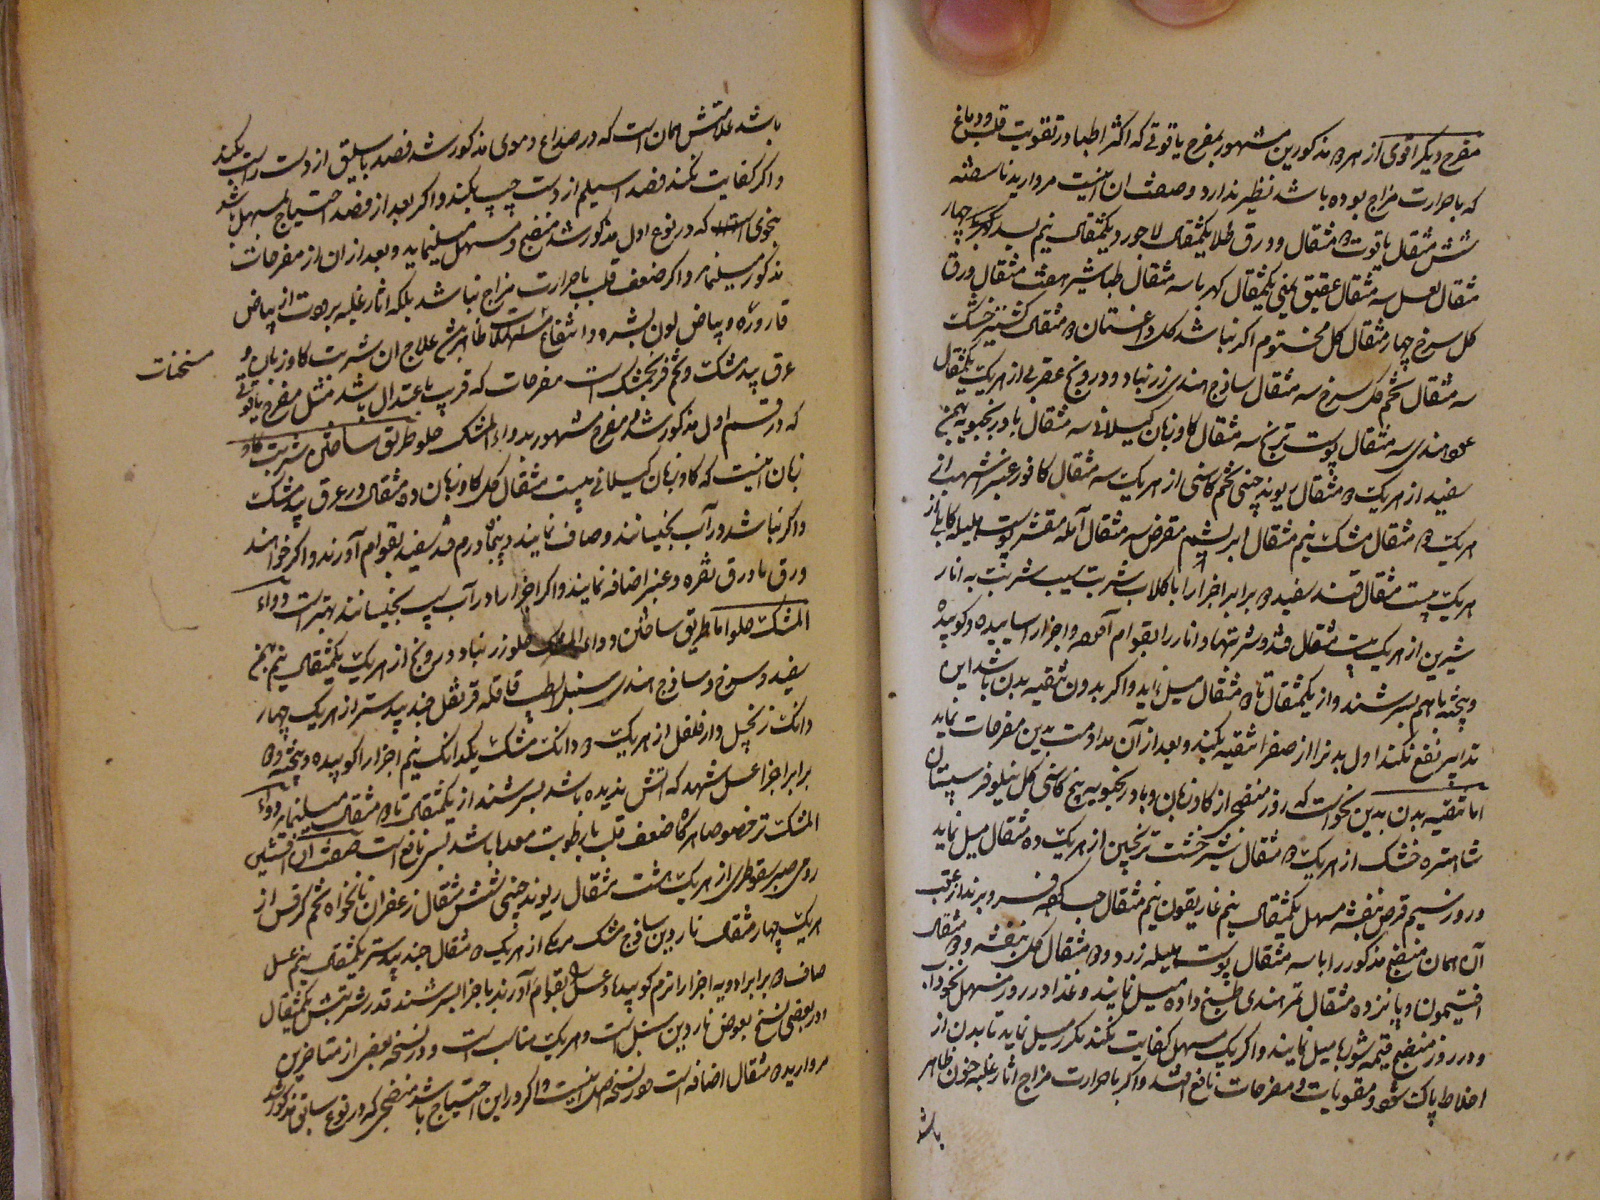 مفرح دیکر اقوی از هر ۵ مذکورین مشهور بمفرح یاقوتی که اکثر اطبا در تقویت قلب و دماغ
که با حرارت مزاج بوده باشد نظیر ندارد و صفت ان اینست مروارید ناسفته
شش مثقال یاقوت ۵ مثقال و ورق طلا یکمثقال لاجورد یکمثقال نیم بسد چهار
مثقال لعل سه مثقال عقیق یمنی یکمثقال کهربا سه مثقال طباشیر هفت مثقال ورق
کل سرخ چهار مثقال کل مختوم اکر نباشد کل داغستان ۵ مثقال کشنیز خشک
سه مثقال تخم کل سرخ سه مثقال ساذج هندی زرنباد و درونج عقربی از هریک یکمثقال
عود هندی سه مثقال پوست ترنج سه مثقال کاوزبان کیلانی سه مثقال بادرنجبویه بهمن
سفید از هریک ۵ مثقال ریوند چینی تخم کاسنی از هریک سه مثقال کافور عنبر اشهب از
هریک ۵ مثقال مشک نیم مثقال ابریشم مقرض سه مثقال آمله مقشر پوست هلیله کابلی از
هریک بیست مثقال قند سفید ۵ برابر اجزا را با کلاب شربت سیب شربت به انار
شیرین از هریک بیست مثقال قند و شربتها و انار را بقوام آورده و اجزا را ساییده و کوبیده
و پخته با هم بسرشند و از یکمثقال تا ۵ مثقال میل نماید و اکر بدون تنقیه بدن باشد این
تدابیر نفع نکند اول بدن را از صفرا تنقیه بکند و بعد از آن مداومت بدین مفرحات نماید
اما تنقیه بدن بدین نحو است که روز منضج از کاوزبان و بادرنجبویه بیخ کاسنی کل نیلوفر سپستان
شاهتره خشک از هریک ۵ مثقال شیرخشت ترنجبین از هریک ده مثقال میل نماید
و روز سیم قرص بنفشه مسهل یکمثقال نیم غاریقون نیم مثقال حب کرده فرو برند از عقب
آن همان منضج مذکور را با سه مثقال پوست هلیله زرد و ۵ مثقال کل بنفشه و ۵ مثقال
افتیمون و پانزده مثقال تمر هندی طبخ داده میل نمایند و غذا در روز مسهل نخوداب
و در روز منضج قیمه شوربا میل نمایند و اکر یک مسهل کفایت نکند مکرر میل نماید تا بدن از
اخلاط پاک شود و مقویات و مفرحات نافع افتد و اکر با حرارت مزاج اثار غلبه خون ظاهر
باشد
باشد علامتش همان است که در صداع دموی مذکور شد فصد باسلیق از دست راست بکند
و اکر کفایت نکند فصد اسیلم از دست چپ بکند و اکر بعد از فصد احتیاج بمسهل باشد
بنحوی که در نوع اول مذکور شد منضج و مسهل میل نماید و بعد از ان از مفرحات
مذکور میل نماید و اکر ضعف قلب با حرارت مزاج نباشد بلکه اثار غلبه برودت از بیاض
قاروره و بیاض لون بشره و انتفاع ظاهر شد علاج ان شربت کاوزبان و
عرق بیدمشک و تخم فرنجمشک است مفرحات که قریب باعتدال باشد مثل مفرح یاقوتی
مسخنات
که در قسم اول مذکور شد و مفرح مشهور بدواء المشک حلو طریق ساختن شربت کاو
زبان اینست که کاوزبان کیلانی بیست مثقال کل کاوزبان ده مثقال در عرق بیدمشک
و اکر نباشد در آب بخیسانند و صاف نمایند و پنجاه درم قند سفید بقوام آورند و اکر خواهند
ورق یا ورق نقره و عنبر اضافه نمایند و اکر اجزا را در آب سیب بخیسانند بهتر است دواء
المشک حلو اما طریق ساختن دواء المشک حلو زرنباد درونج از هریک یکمثقال نیم بهمن
سفید و سرخ و ساذج هندی سنبل الطیب قاقله قرنفل جند بیدستر از هریک چهار
دانک زنجبیل دارفلفل از هریک ۵ دانک مشک یکدانک نیم اجزا را کوبیده و پخته ۵
برابر اجزا عسل شهد که آتش ندیده باشد بسرشند از یکمثقال تا ۵ مثقال میل نماید دواء
المشک تر خصوصا هرکاه ضعف قلب با رطوبت معده باشد بس نافع است صفت آن افسنتین
رومی صبر سقوطری از هریک هشت مثقال ریوند چینی شش مثقال زعفران نانخواه تخم کرفس از
هریک چهار مثقال ناردین ساذج مشک مرمکی از هریک ۵ مثقال جند بیدستر یکمثقال نیم عسل
صاف ۵ برابر ادویه اجزا را نرم کوبیده و عسل بقوام آورند با جزا بسرشند قدر شربتش یکمثقال
و در بعضی نسخ بعوض ناردین سنبل است و هریک مناسب است و در نسخه بعضی از متاخرین
مروارید ۵ مثقال اضافه است و در نسخه اصل نیست و اکر در این احتیاج باشد منضجی که در نوع سابق مذکور شد